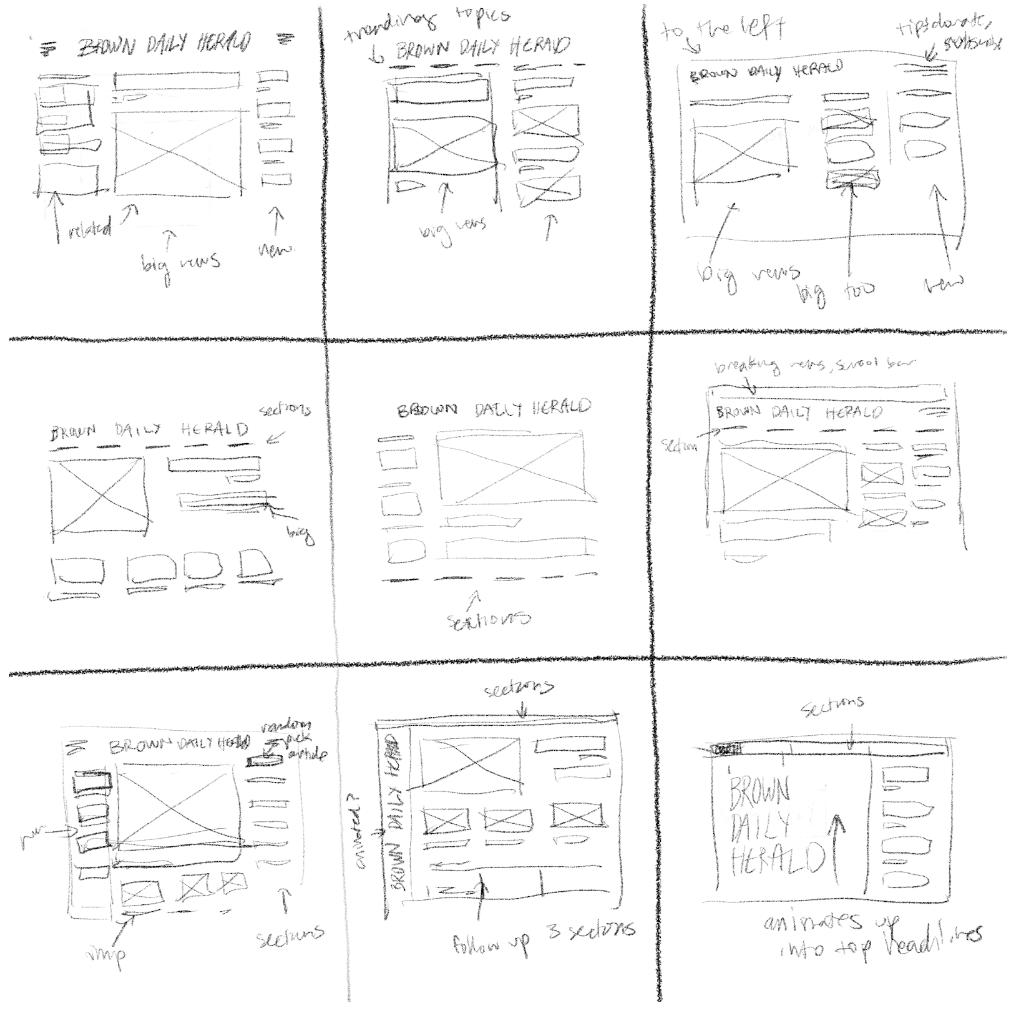 BROWN DAILY HERALD
related
big news
new
trending topics
BROWN DAILY HERALD
big news
to the left
tips, donate,
subscribe
BROWN DAILY HERALD
big news
big too
new
sections
BROWN DAILY HERALD
big
BROWN DAILY HERALD
sections
breaking news, scroll bar
BROWN DAILY HERALD
section
random
pick
article
BROWN DAILY HERALD
imp
sections
sections
animated?
BROWN DAILY HERALD
follow up 3 sections
sections
BROWN
DAILY
HERALD
animates up
into top headlines